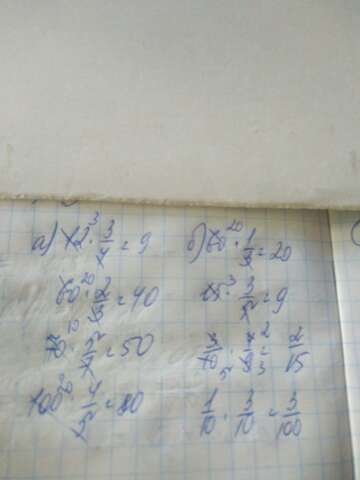 а) 12³ · 3/4 = 9
60²⁰ · 2/3 = 40
70¹⁰ · 5/7 = 50
100²⁰ · 4/5 = 80
б) 60²⁰ · 1/3 = 20
15³ · 3/5 = 9
3/10 · 4/9 = 2/15
1/10 · 3/10 = 3/100